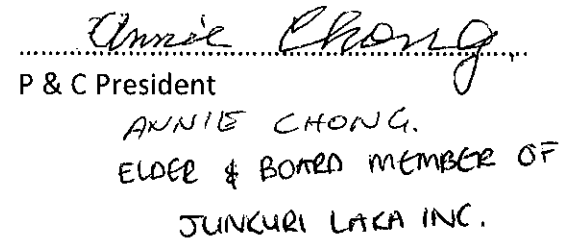 Annie Chong.
P & C President
ANNIE CHONG.
ELDER & BOARD MEMBER OF
JUNKURI LAKA INC.